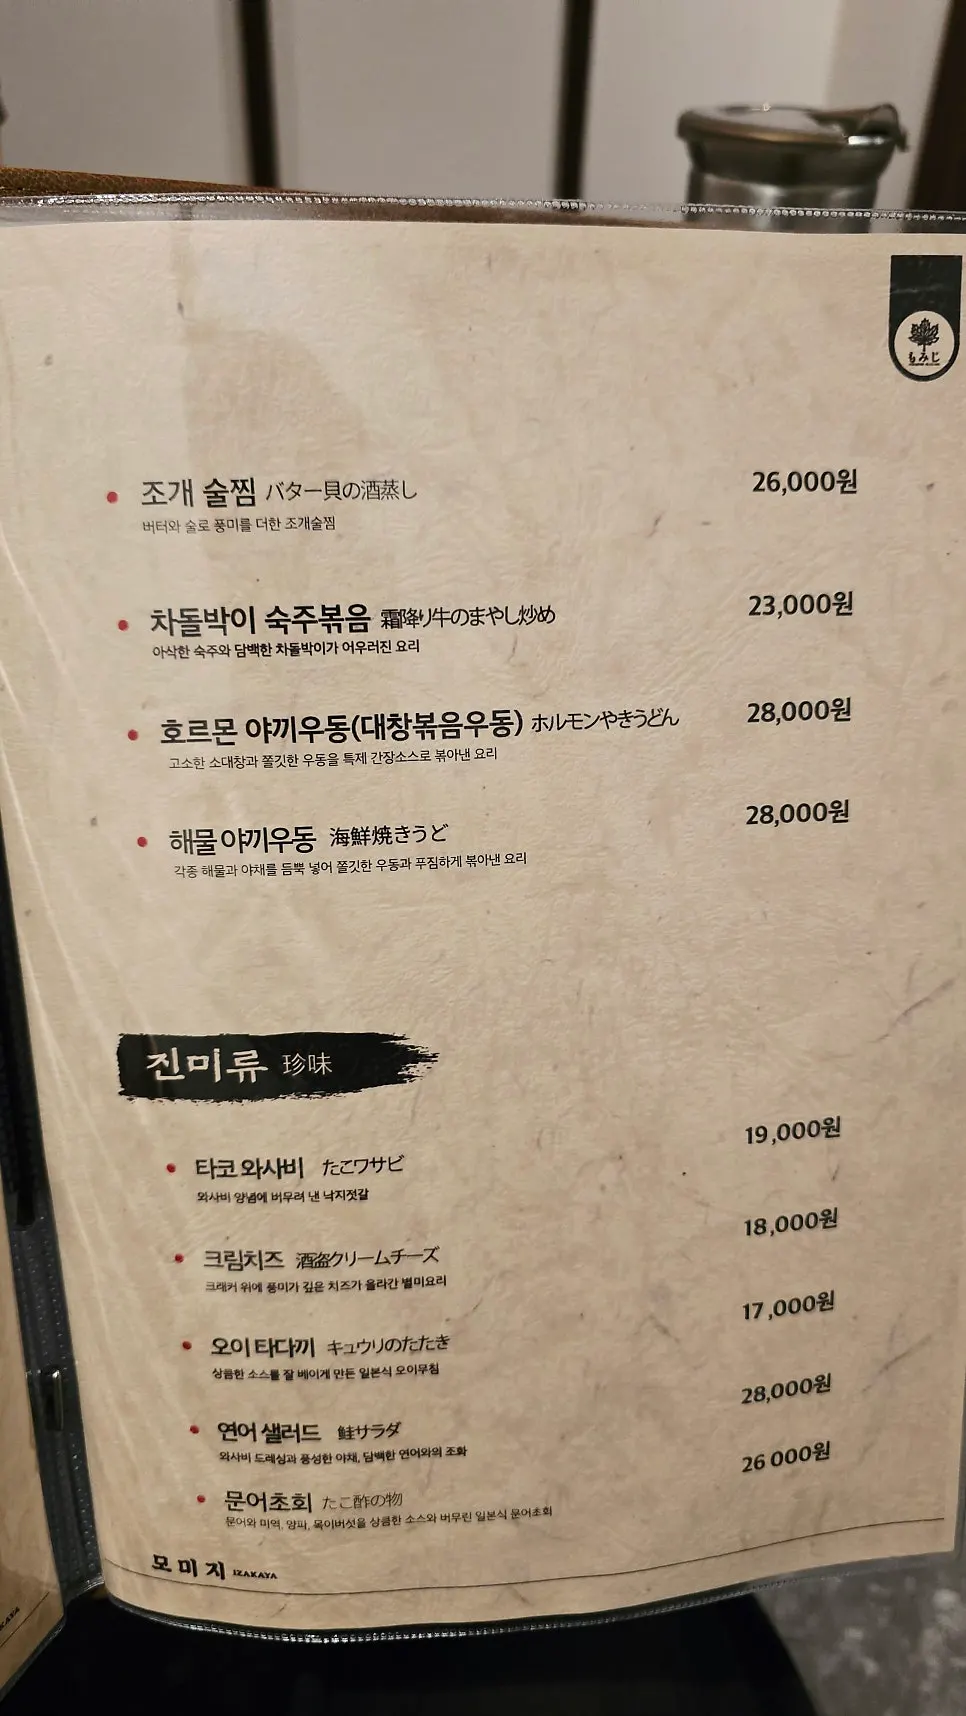 もみじ
조개 술찜 バター貝の酒蒸し 26,000원
버터와 술로 풍미를 더한 조개술찜
차돌박이 숙주볶음 霜降り牛のまやし炒め 23,000원
아삭한 숙주와 담백한 차돌박이가 어우러진 요리
호르몬 야끼우동(대창볶음우동) ホルモンやきうどん 28,000원
고소한 소대창과 쫄깃한 우동을 특제 간장소스로 볶아낸 요리
해물 야끼우동 海鮮焼きうど 28,000원
각종 해물과 야채를 듬뿍 넣어 쫄깃한 우동과 푸짐하게 볶아낸 요리
진미류 珍味
타코 와사비 たこワサビ 19,000원
와사비 양념에 버무려 낸 낙지젓갈
크림치즈 酒盗クリームチーズ 18,000원
크래커 위에 풍미가 깊은 치즈가 올라간 별미요리
오이 타다끼 キュウリのたたき 17,000원
상큼한 소스를 잘 베이게 만든 일본식 오이무침
연어 샐러드 鮭サラダ 28,000원
와사비 드레싱과 풍성한 야채, 담백한 연어와의 조화
문어초회 たこ酢の物 26 000원
문어와 미역, 양파, 목이버섯을 상큼한 소스와 버무린 일본식 문어초회
모미지 IZAKAYA